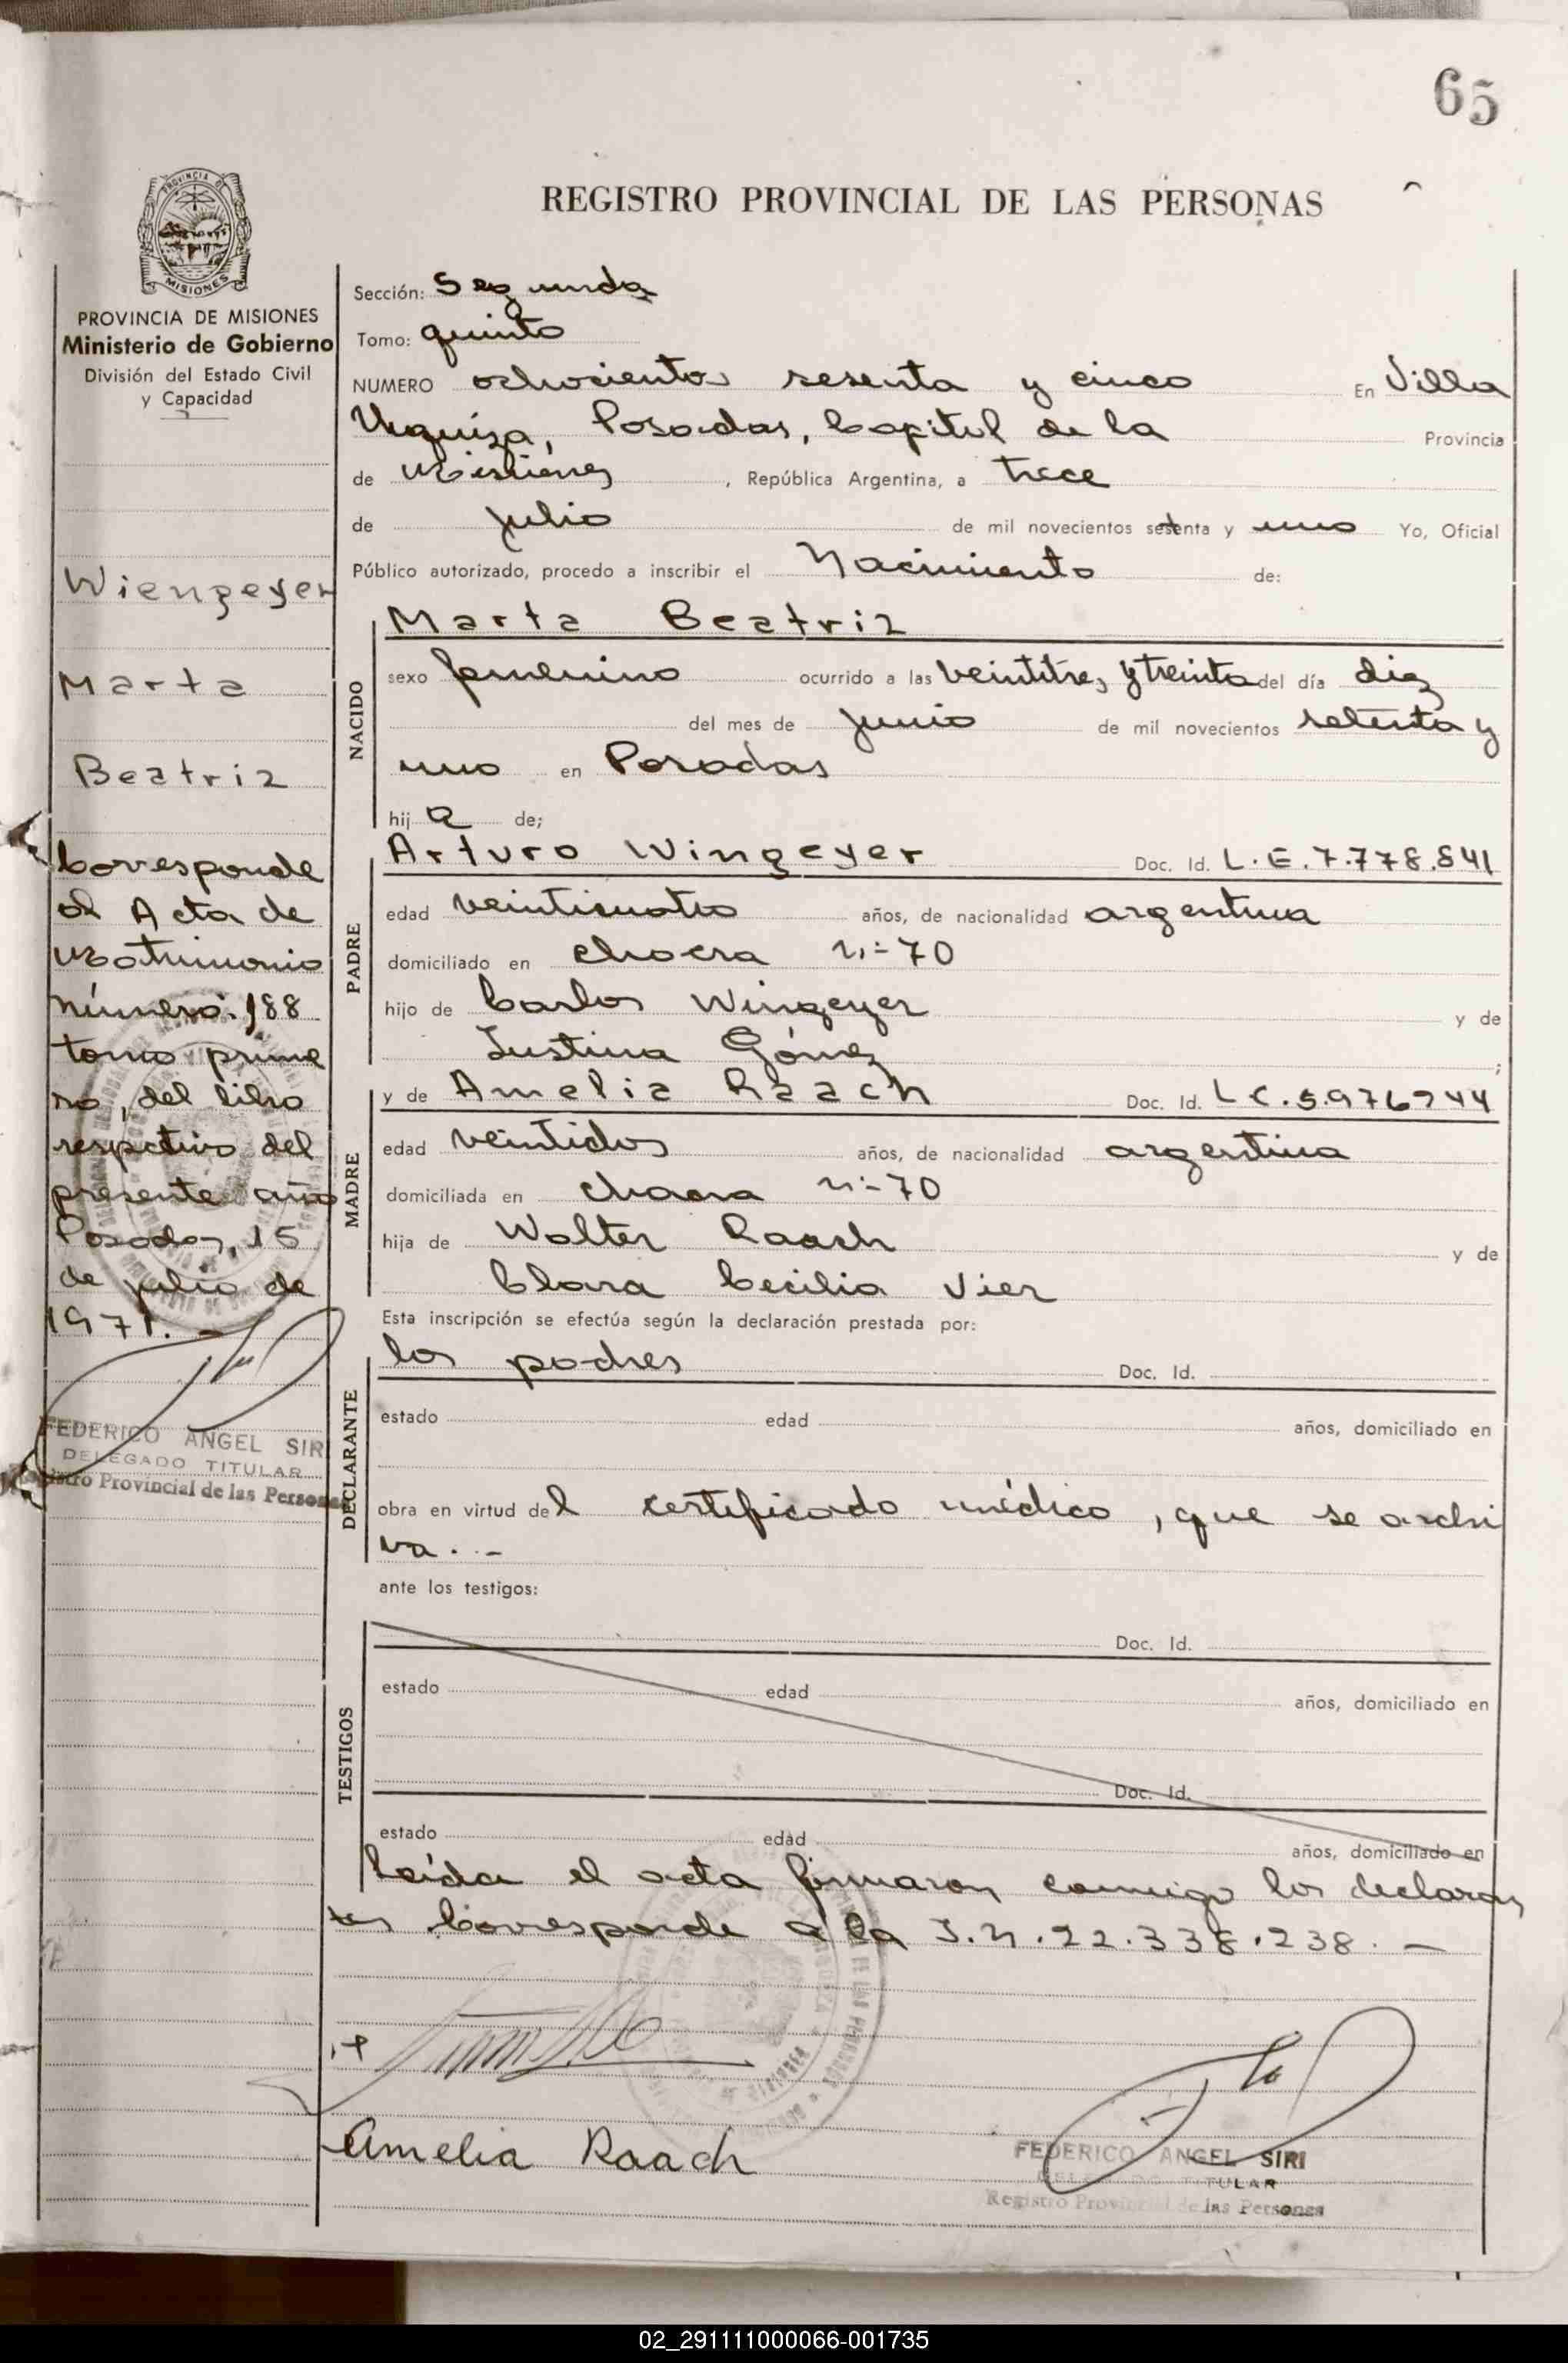 65
REGISTRO PROVINCIAL DE LAS PERSONAS
PROVINCIA DE
MISIONES
PROVINCIA DE MISIONES
Ministerio de Gobierno
División del Estado Civil
y Capacidad
Wiengeyer
Marta
Beatriz
Corresponde
al Acta de
Matrimonio
número: 188
tomo prime
ro, del libro
respectivo del
presente año
Posadas, 15
de julio de
1971. -
FEDERICO ANGEL SIRI
DELEGADO TITULAR
Registro Provincial de las Personas
Sección: Segunda
Tomo: quinto
NUMERO ochocientos sesenta y cinco En Villa
Urquiza, Posadas, Capital de la Provincia
de Misiones, República Argentina, a trece
de julio de mil novecientos setenta y uno Yo, Oficial
Público autorizado, procedo a inscribir el Nacimiento de:
NACIDO
Marta Beatriz
sexo femenino ocurrido a las veintitres y treinta del día diez
del mes de junio de mil novecientos setenta y
uno en Posadas
hija de;
PADRE
Arturo Wingeyer Doc. Id. L.E.7.778.841
edad veinticuatro años, de nacionalidad argentina
domiciliado en chacra n:-70
hijo de Carlos Wingeyer y de
Justina Gómez;
MADRE
y de Amelia Raach Doc. Id. L.C.5.976744
edad veintidos años, de nacionalidad argentina
domiciliada en chacra n:-70
hija de Walter Raach y de
Clara Cecilia Vier
Esta inscripción se efectúa según la declaración prestada por:
DECLARANTE
los padres Doc. Id.
estado edad años, domiciliado en
obra en virtud del certificado médico, que se archi
va. . -
ante los testigos:
TESTIGOS
Doc. Id.
estado edad años, domiciliado en
Doc. Id.
estado edad años, domiciliado en
Leída el acta firmaron conmigo los declaran
tes Corresponde a la I.N.22.338.238. -
Amelia Raach
FEDERICO ANGEL SIRI
DELEGADO TITULAR
Registro Provincial de las Personas
02_291111000066-001735